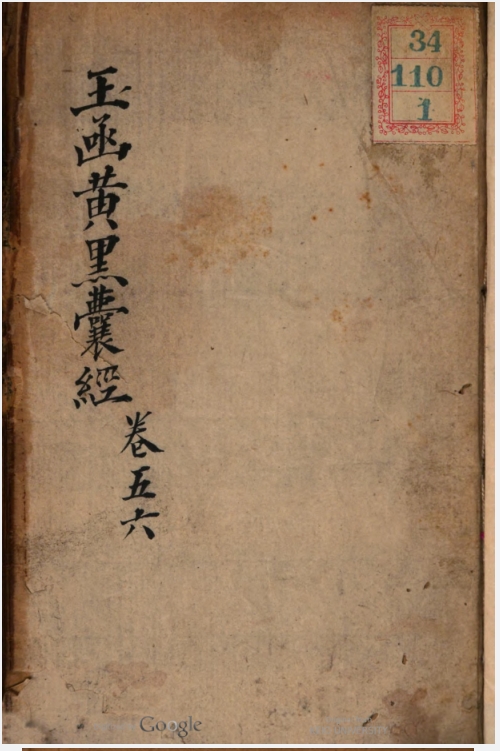 玉函黄黑囊經
卷五六
34
110
1
Google